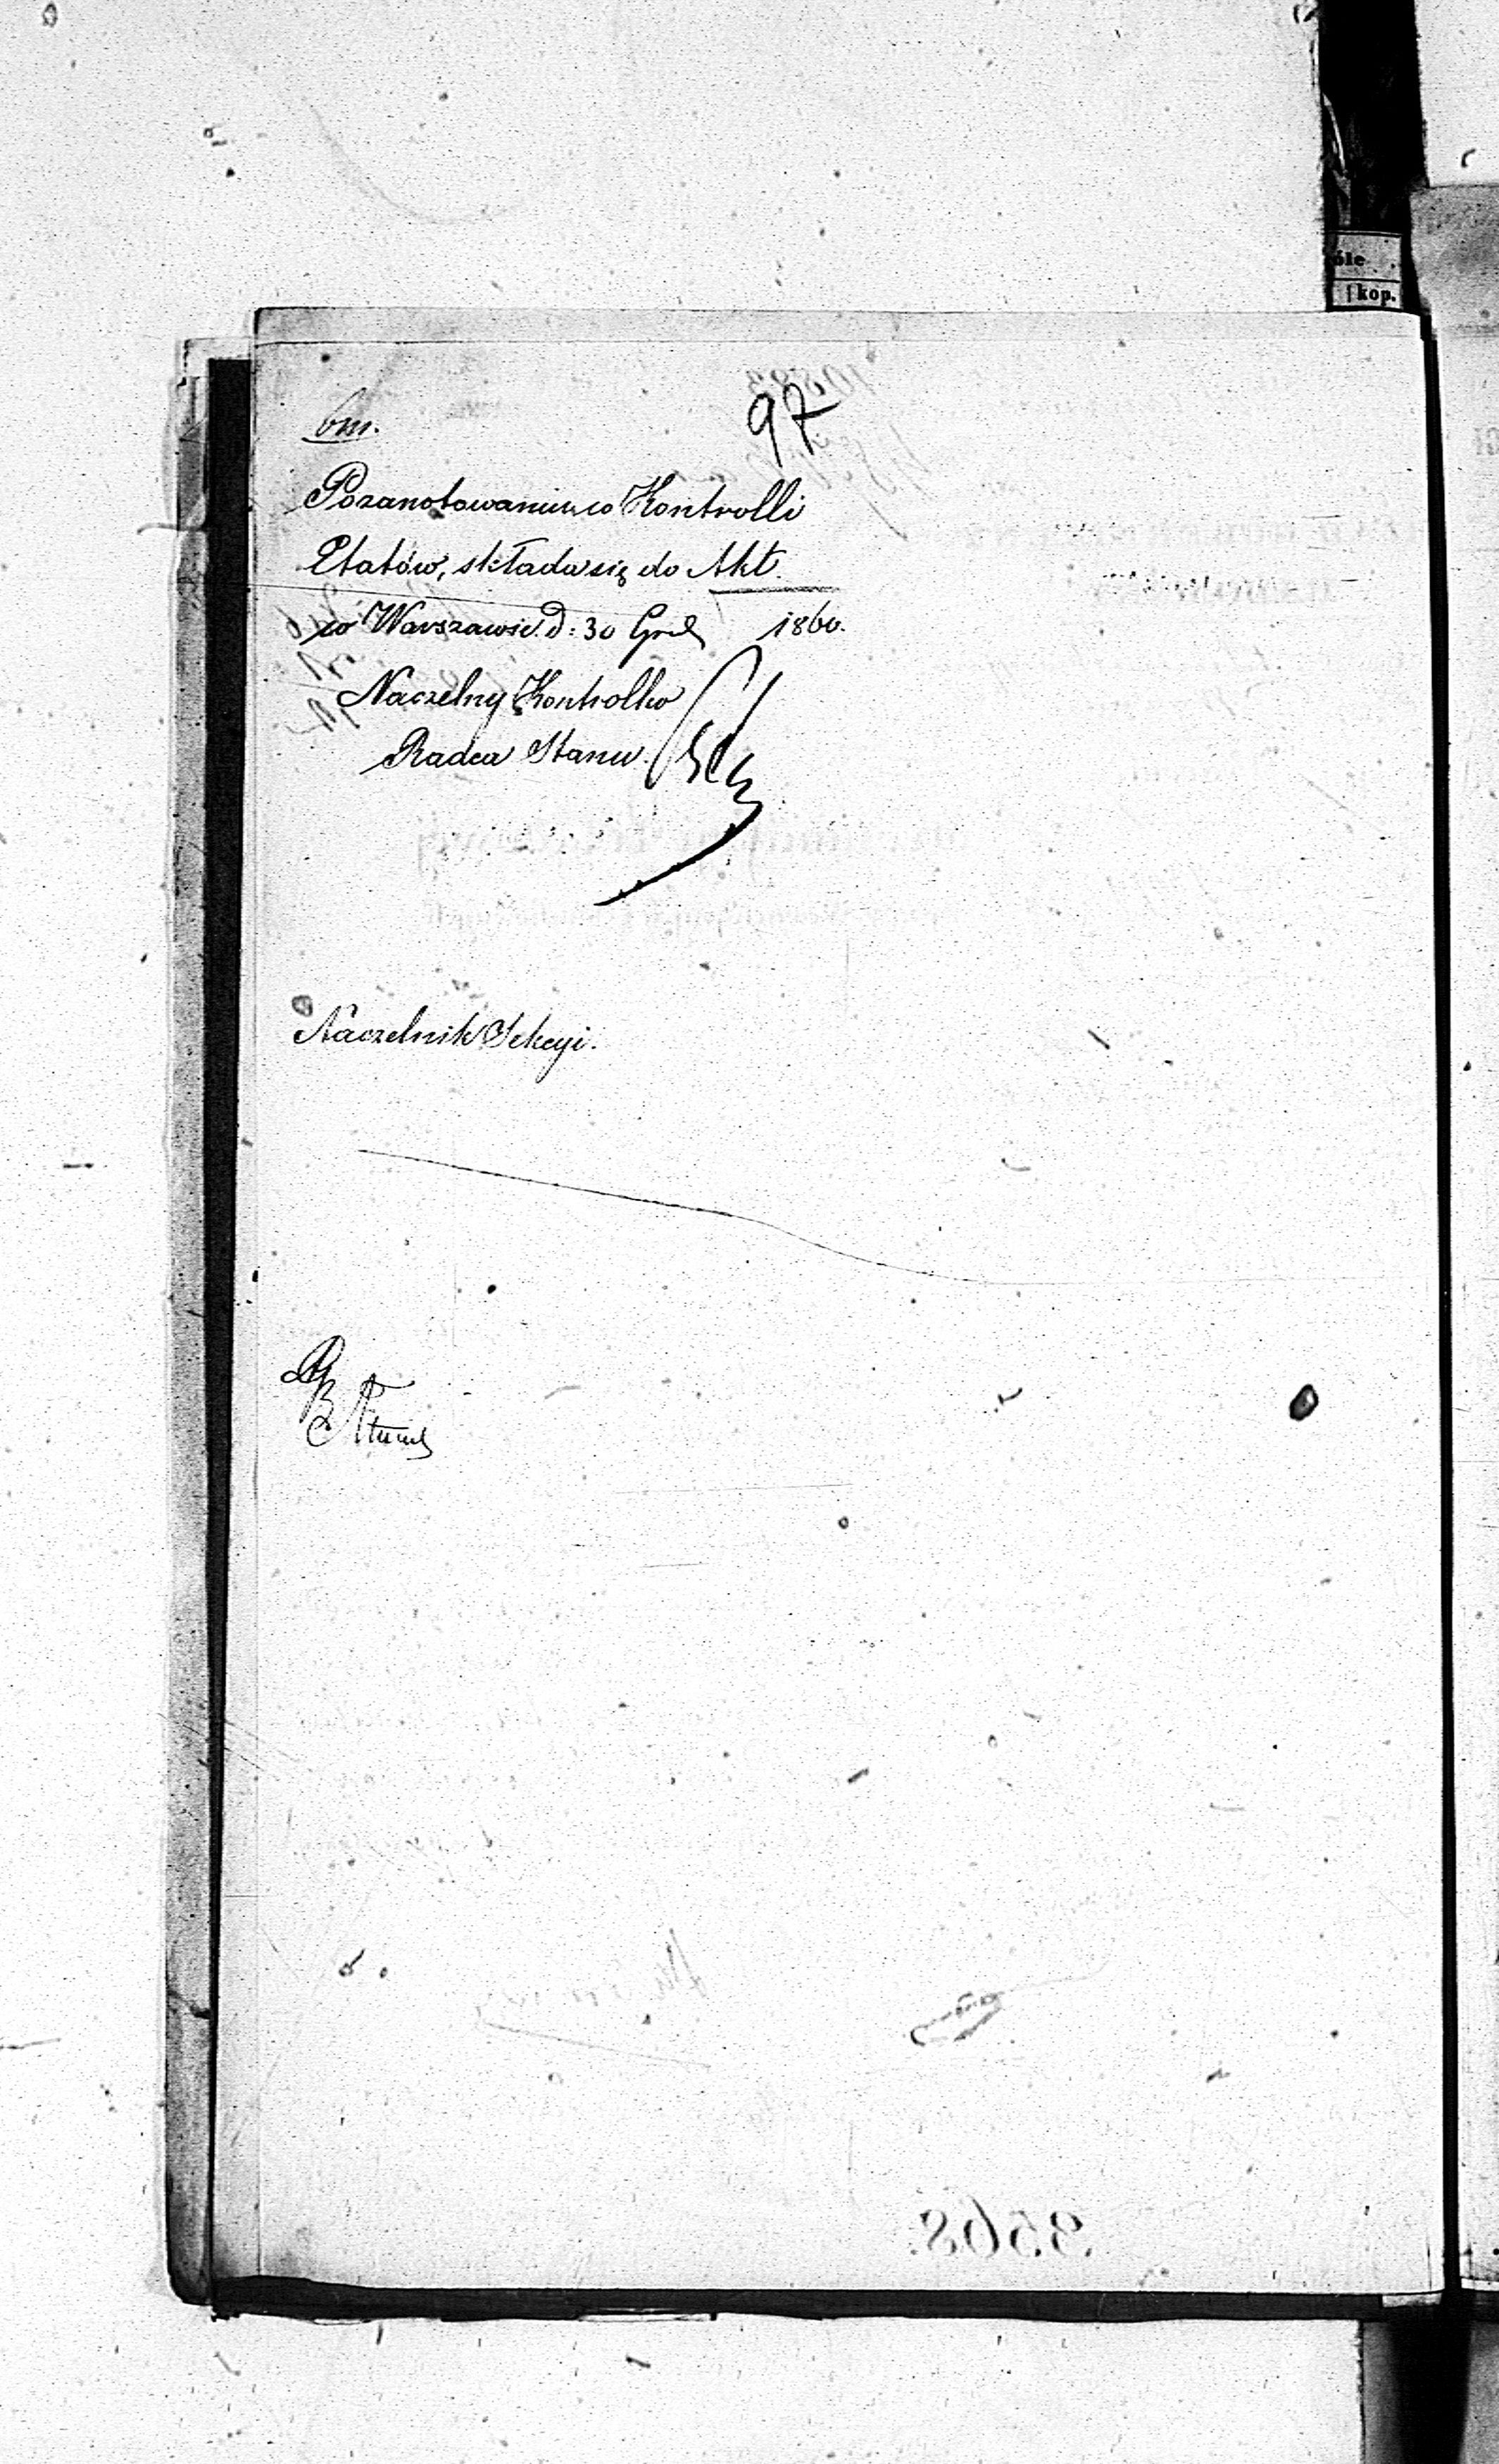 97
bm.
Pozanotowaniu w Kontrolli
Etatów, składa się do Akt.
w Warszawie d: 30 Grud 1860.
Naczelny Kontroller
Radca Stanu
Naczelnik Sekcyi.
3568
óle
kop.